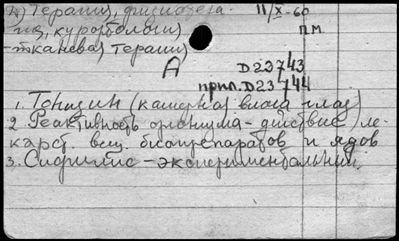 А) Терапия, физиотера- 11/X-60
пия, курортология пм
- тканевая терапия
А Д23743
прил. Д23744
1. Тонзин (камерная влага глаз)
2. Реактивность организма - действие ле-
карст. вещ. биопрепаратов и ядов
3. Сифилис - экспериментальный.